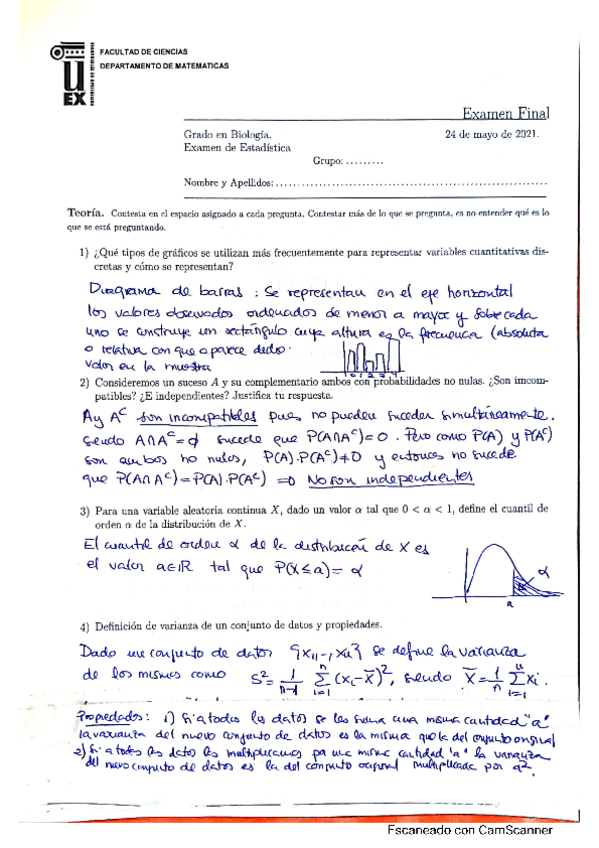 FACULTAD DE CIENCIAS
DEPARTAMENTO DE MATEMATICAS
UEX
Examen Final
Grado en Biología. 24 de mayo de 2021.
Examen de Estadística
Grupo: .........
Nombre y Apellidos: ................................................................
Teoría. Contesta en el espacio asignado a cada pregunta. Contestar más de lo que se pregunta, es no entender qué es lo
que se está preguntando.
1) ¿Qué tipos de gráficos se utilizan más frecuentemente para representar variables cuantitativas dis-
cretas y cómo se representan?
Diagrama de barras : Se representan en el eje horizontal
los valores observados ordenados de menor a mayor y sobre cada
uno se construye un rectángulo cuya altura es la frecuencia (absoluta
o relativa con que aparece dicho
valor en la muestra
2) Consideremos un suceso A y su complementario ambos con probabilidades no nulas. ¿Son imcom-
patibles? ¿E independientes? Justifica tu respuesta.
A y Aᶜ son incompatibles pues no pueden suceder simultáneamente.
siendo A∩Aᶜ=∅ sucede que P(A∩Aᶜ)=0. Pero como P(A) y P(Aᶜ)
son ambos no nulos, P(A).P(Aᶜ)≠0 y entonces no sucede
que P(A∩Aᶜ)=P(A).P(Aᶜ) =0 No son independientes
3) Para una variable aleatoria continua X, dado un valor α tal que 0 < α < 1, define el cuantil de
orden α de la distribución de X.
El cuantil de orden α de la distribución de X es
el valor a∈ℝ tal que P(X≤a)=α
α
a
4) Definición de varianza de un conjunto de datos y propiedades.
Dado un conjunto de datos {x₁,..,xₙ} se define la varianza
de los mismos como S²= 1/(n-1) Σᵢ₌₁ⁿ (xᵢ-x̄)², siendo x̄=1/n Σᵢ₌₁ⁿ xᵢ.
Propiedades: 1) Si a todos los datos se les suma una misma cantidad "a"
la varianza del nuevo conjunto de datos es la misma que la del conjunto original
2) Si a todos los datos les multiplicamos por una misma cantidad "a" la varianza
del nuevo conjunto de datos es la del conjunto original multiplicada por a².
Escaneado con CamScanner